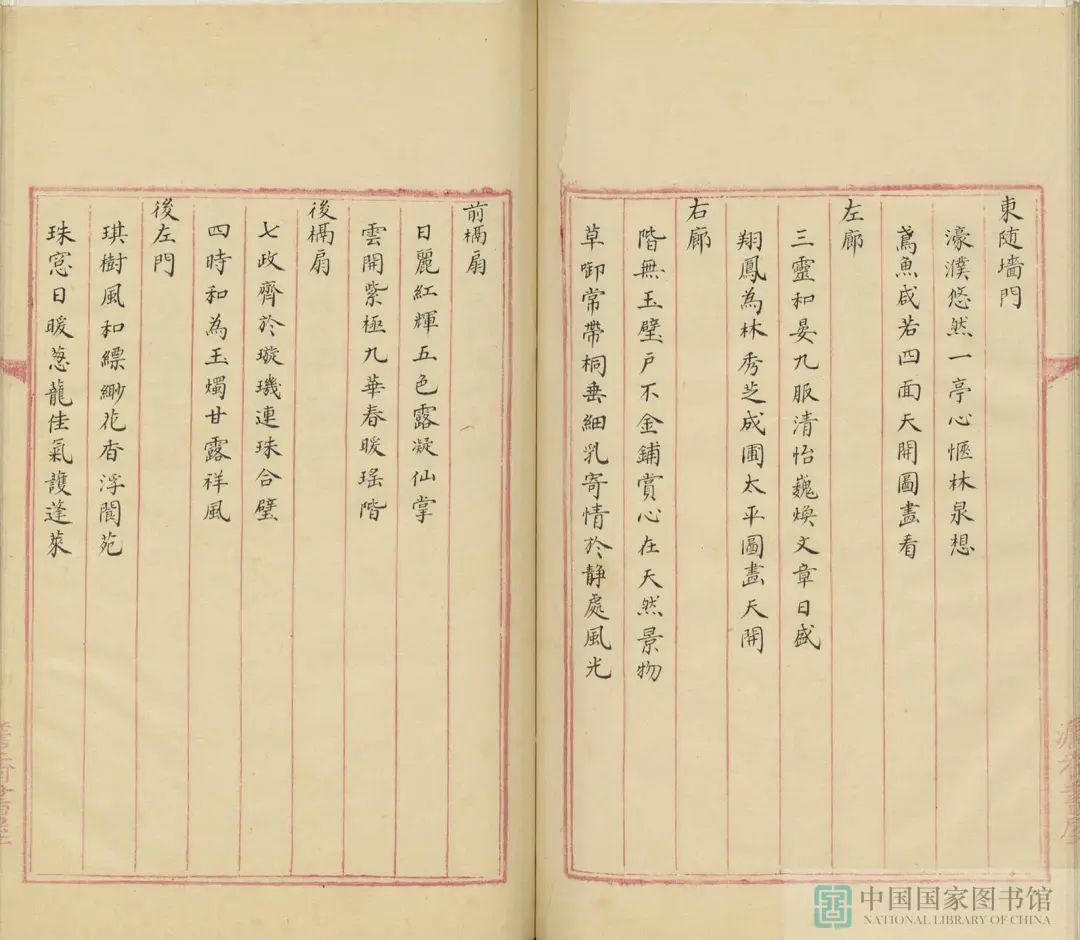 東随墻門
濠濮悠然一亭心愜林泉想
鳶魚咸若四面天開圖畫看
左廊
三靈和晏九服清怡巍煥文章日盛
翔鳳為林秀芝成圃太平圖畫天開
右廊
階無玉壁戶不金鋪賞心在天然景物
草啣常帶桐垂細乳寄情於静處風光
前槅扇
日麗紅輝五色露凝仙掌
雲開紫極九華春暖瑤階
後槅扇
七政齊於璇璣連珠合璧
四時和為玉燭甘露祥風
後左門
琪樹風和縹緲花香浮閬苑
珠窓日暖葱蘢佳氣護蓬萊
中国国家图书馆
NATIONAL LIBRARY OF CHINA